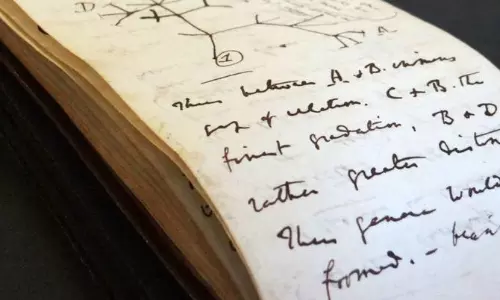 D
A
1
Thus between A. & B. immens
gap of relation. C & B. the
finest gradation, B & D
rather greater distin
Thus genera would
formed. — bear